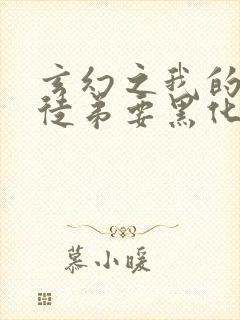 玄幻之我的
徒弟要黑化
慕小暖